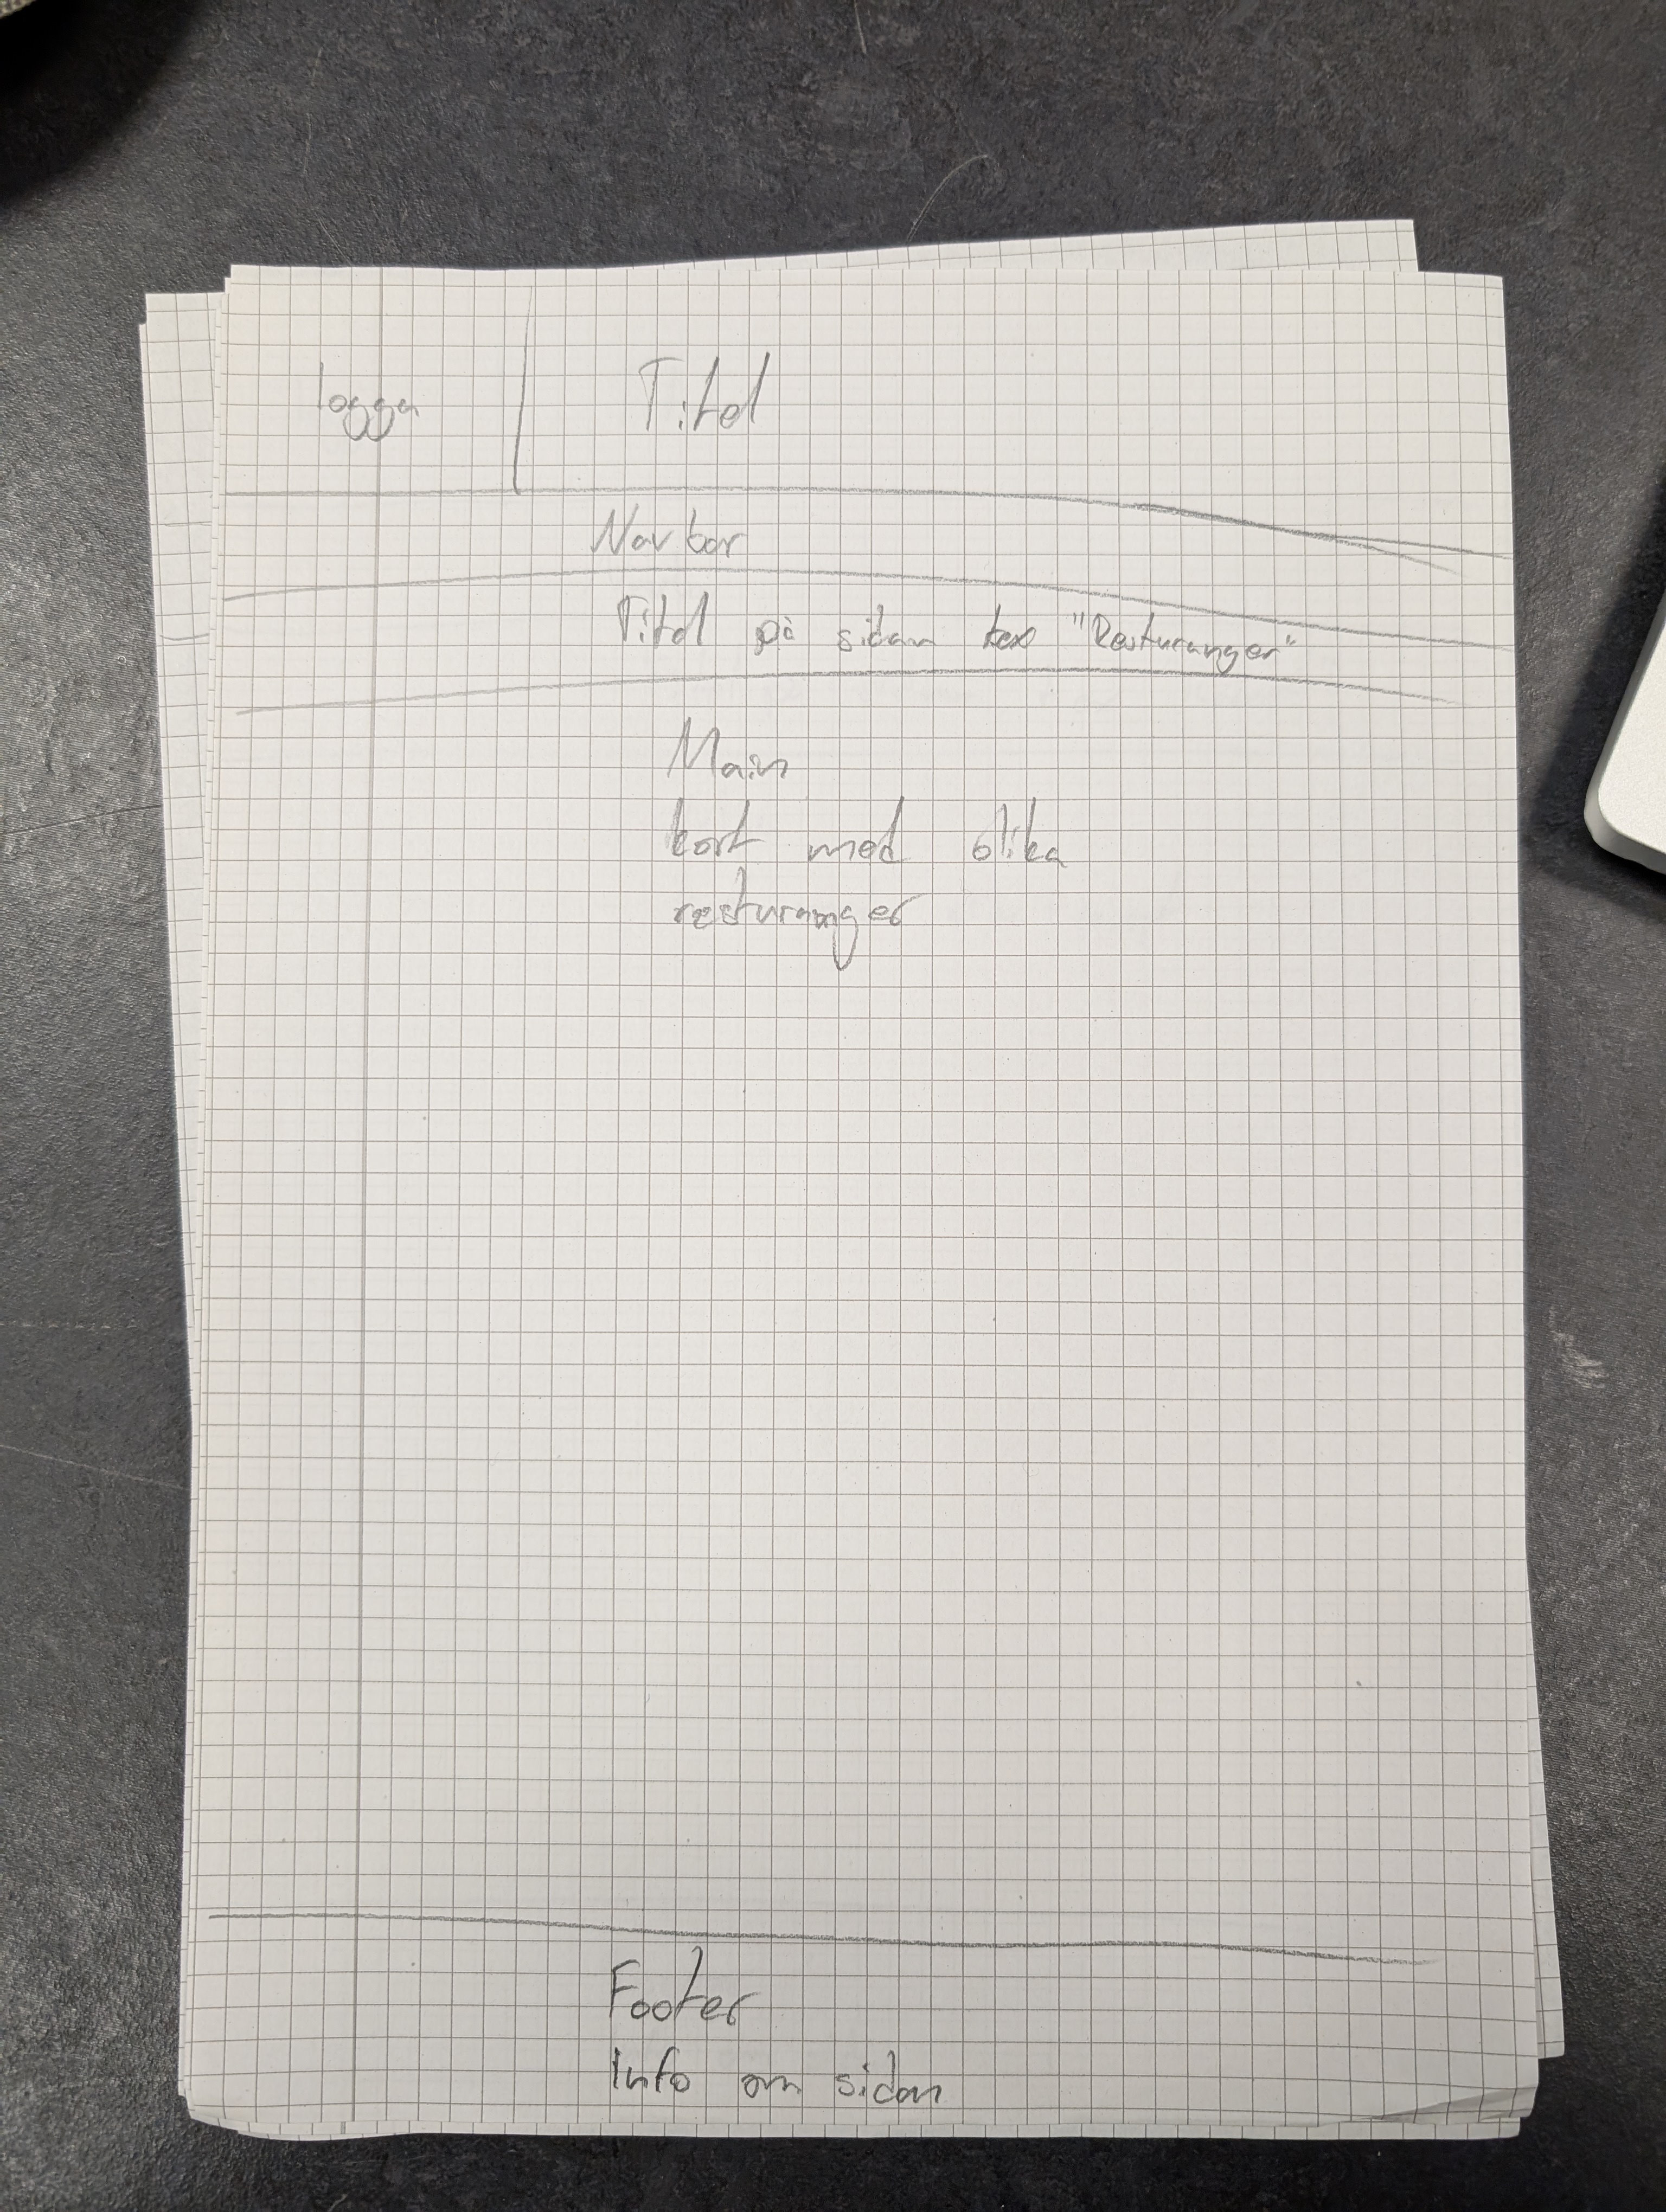 logga
Titel
Navbar
Titel på sidan tex "Resturanger"
Main
kort med olika
resturanger
Footer
Info om sidan